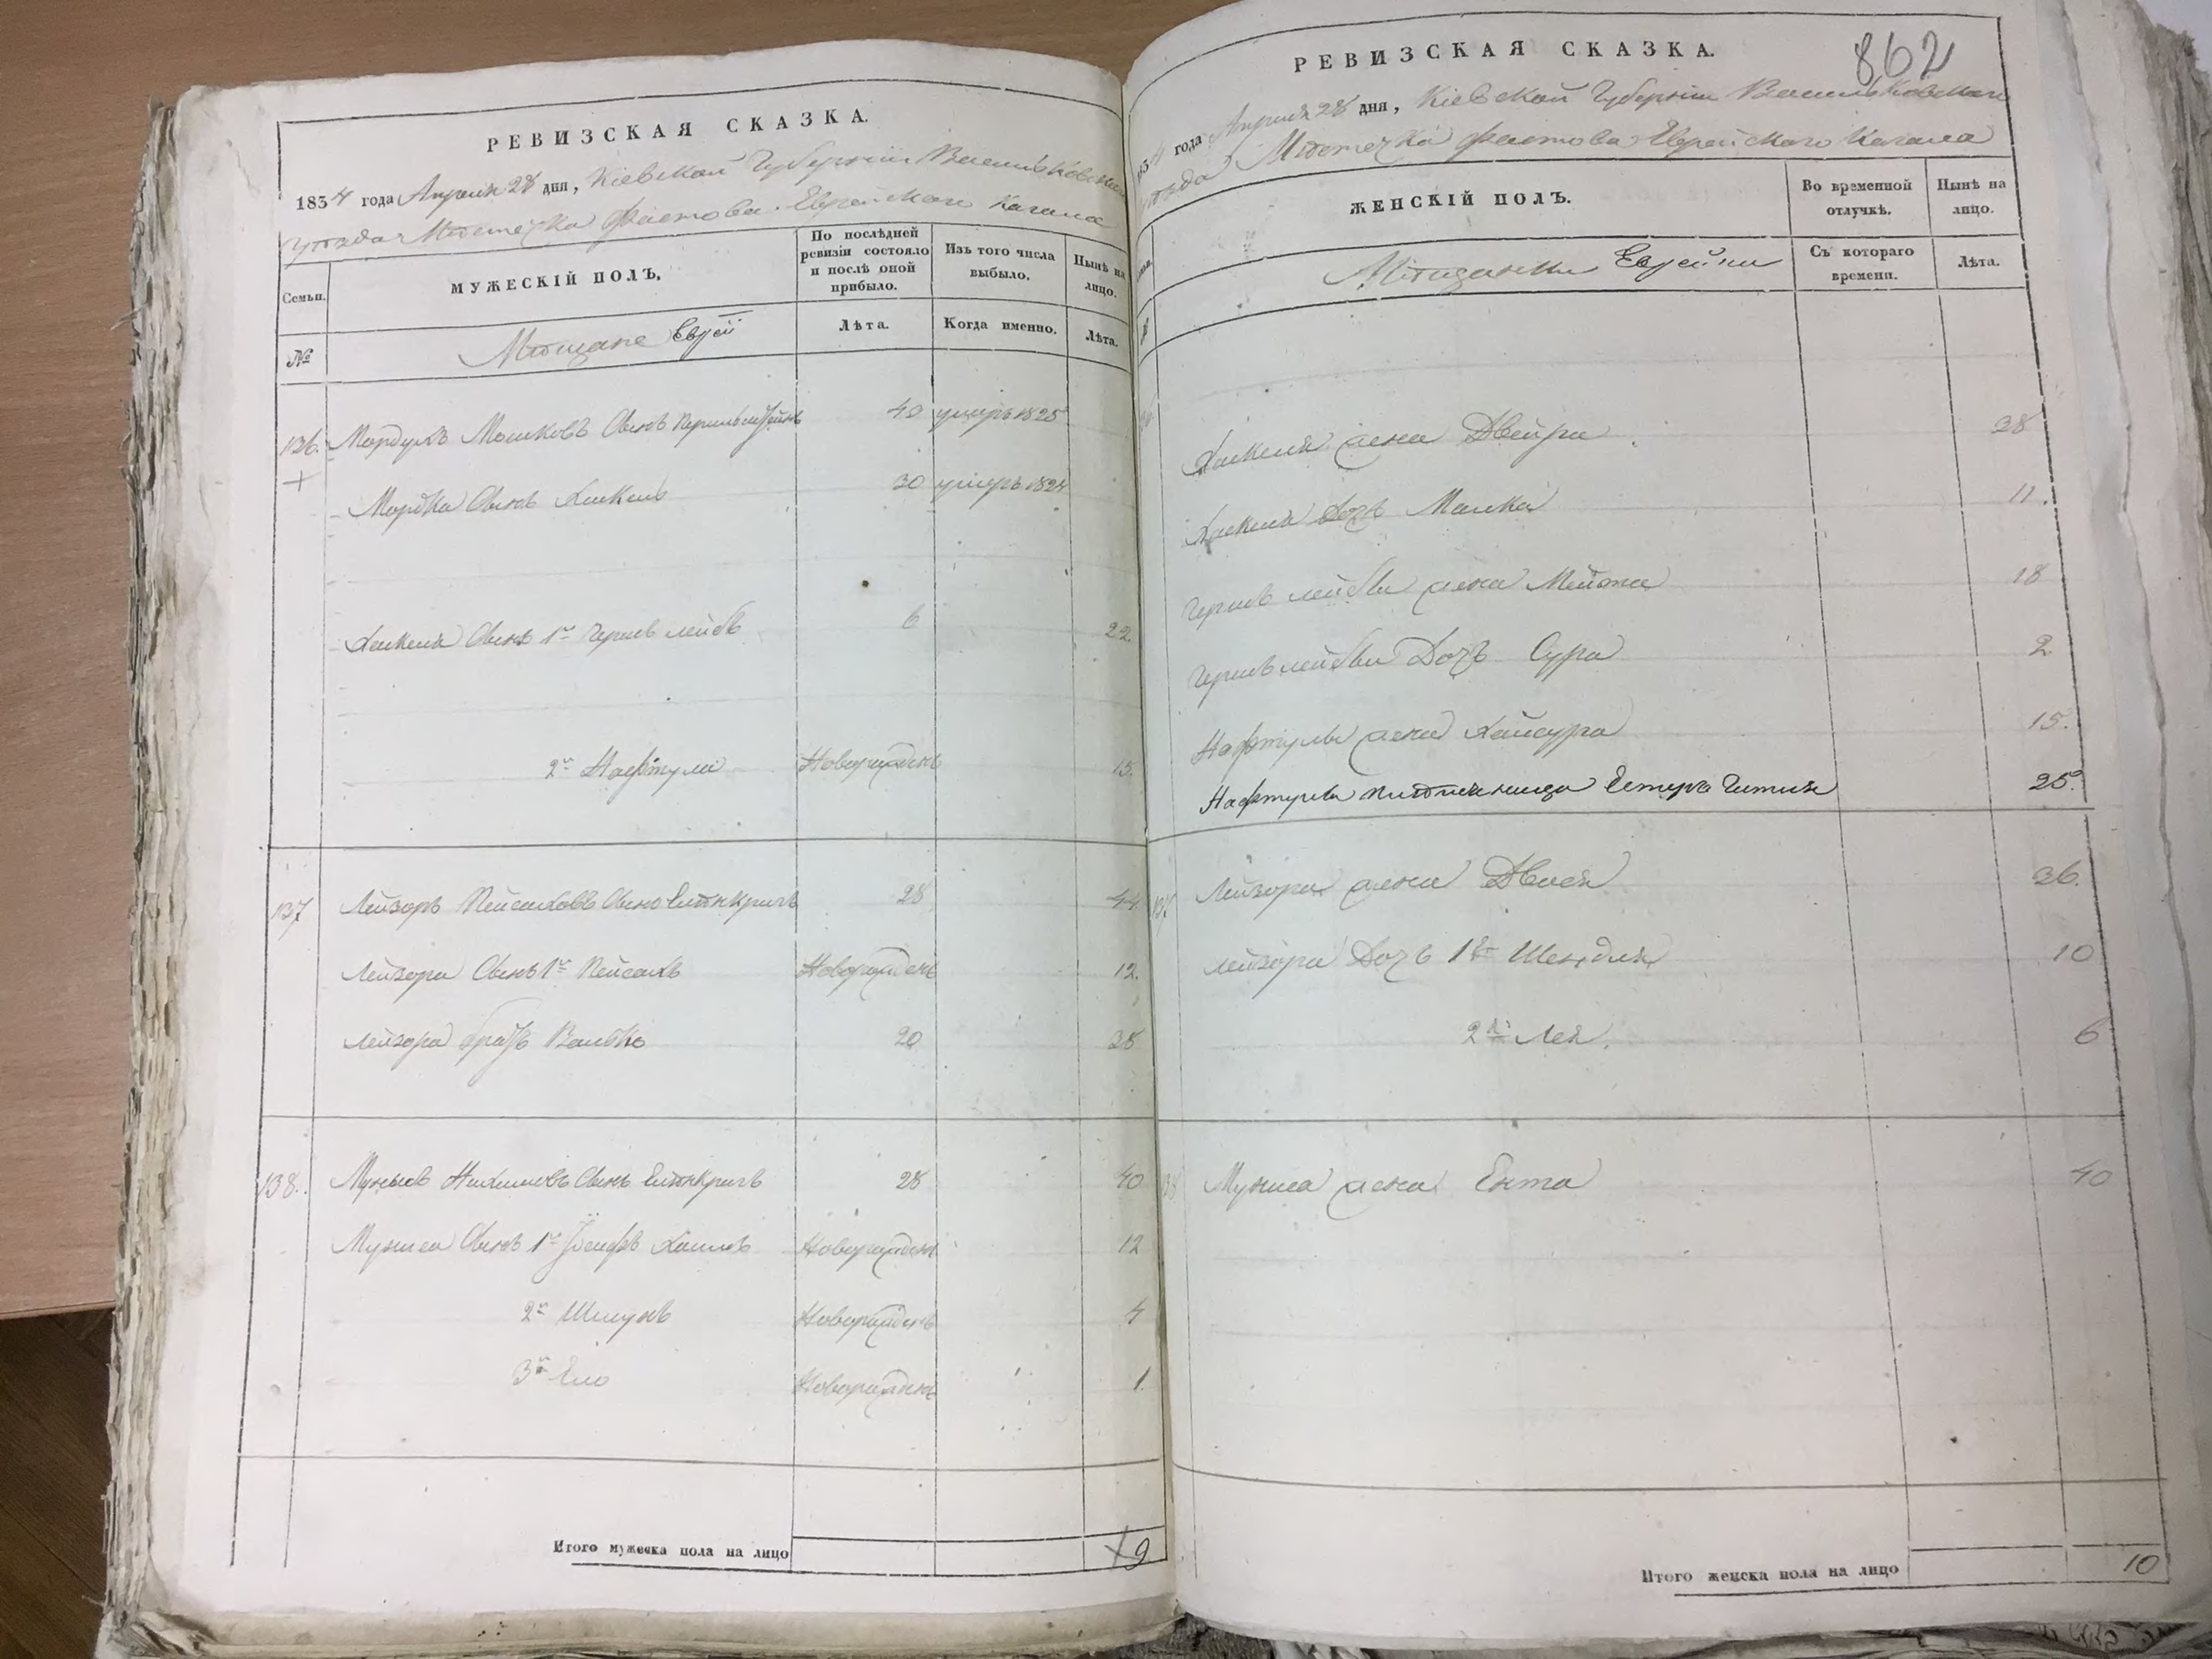 РЕВИЗСКАЯ СКАЗКА.
1834 года Апреля 28 дня, Кіевской Губерніи Васильковскаго
уѣзда Мѣстечка Фастова Еврейскаго Кагала
Семьи.
МУЖЕСКІЙ ПОЛЪ.
По послѣдней ревизіи состояло и послѣ оной прибыло.
Изъ того числа выбыло.
Нынѣ на лицо.
№
Мѣщане Евреи
Лѣта.
Когда именно.
Лѣта.
136. Мордухъ Мошковъ Сынъ 40 умеръ 1825
Мордка Сынъ Хаскель 30 умеръ 1824
Хаскеля Сынъ 1й Гершъ лейбъ 6 22.
2й Нафтули Новорожденъ 15.
137 Лейзоръ Пейсаховъ Сынъ 28 44
Лейзора Сынъ 1й Пейсахъ Новорожденъ 12.
Лейзора братъ Волько 20 28
138. Сынъ 28 40
Сынъ 1й Новорожденъ 12
2й Шмунъ Новорожденъ 4
3й Новорожденъ 1
Итого мужеска пола на лицо 9
РЕВИЗСКАЯ СКАЗКА.
862
года Апреля 28 дня, Кіевской Губерніи Васильковскаго
уѣзда Мѣстечка Фастова Еврейскаго Кагала
ЖЕНСКІЙ ПОЛЪ.
Во временной отлучкѣ.
Нынѣ на лицо.
Мѣщанки Еврейки
Съ котораго времени.
Лѣта.
Хаскеля жена Двейра 38
Хаскеля Дочь Малка 11.
Гершъ лейбы жена 18
Гершъ лейбы Дочь Сура 2
Нафтулы жена Хайсура 15.
Нафтулы племянница Естера Гитля 25.
Лейзора жена Двося 36.
Лейзора Дочь 1я Шендля 10
2я Лея. 6
138 жена Ента 40
Итого женска пола на лицо 10